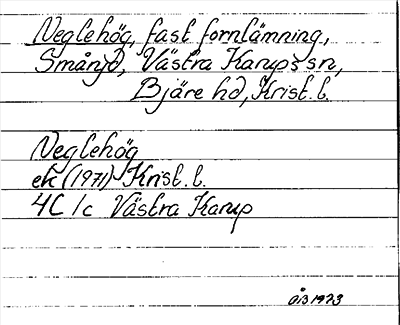 Neglehög, fast fornlämning,
Smånyd, Västra Karups sn,
Bjäre hd, Krist. l.
Neglehög
ek (1971) Krist. l.
4C 1c Västra Karup
ÖB 1973